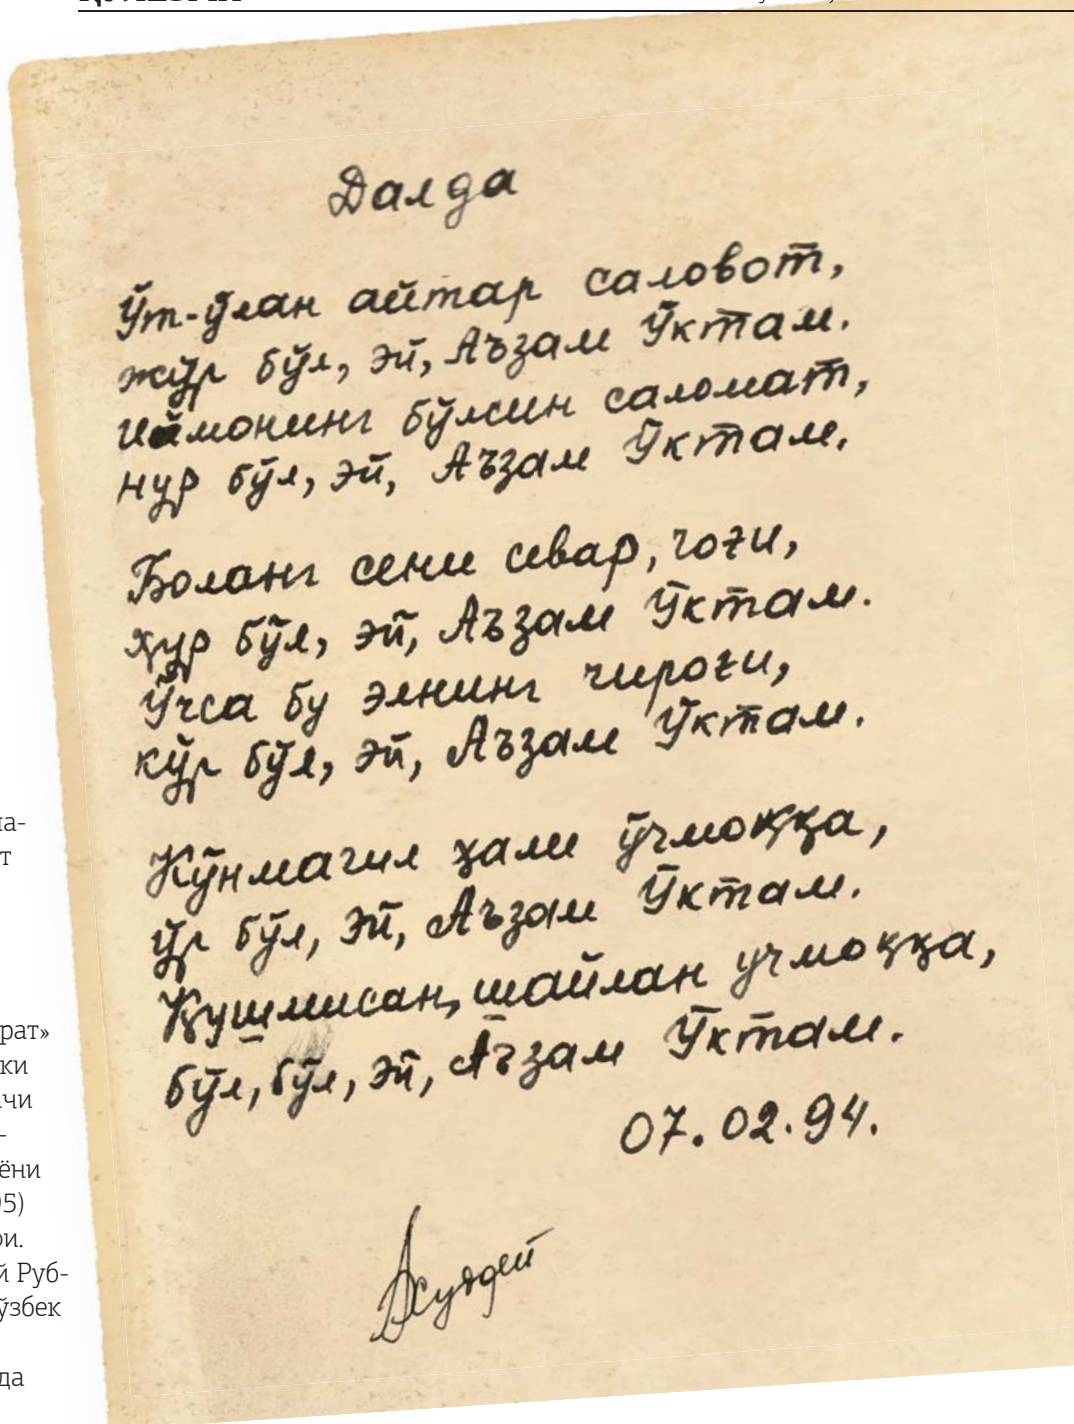 Далда
Ўт-ўлан айтар саловот,
жўр бўл, эй, Аъзам Ўктам.
Иймонинг бўлсин саломат,
нур бўл, эй, Аъзам Ўктам.
Боланг сени севар, чоғи,
ҳур бўл, эй, Аъзам Ўктам.
Ўчса бу элнинг чироғи,
кўр бўл, эй, Аъзам Ўктам.
Кўнмагил ҳали ўчмоққа,
ўр бўл, эй, Аъзам Ўктам.
Қушмисан, шайлан учмоққа,
бўл, бўл, эй, Аъзам Ўктам.
07.02.94.
на-
т
рат»
ки
чи
-
ёни
95)
ри.
й Руб-
ўзбек
да